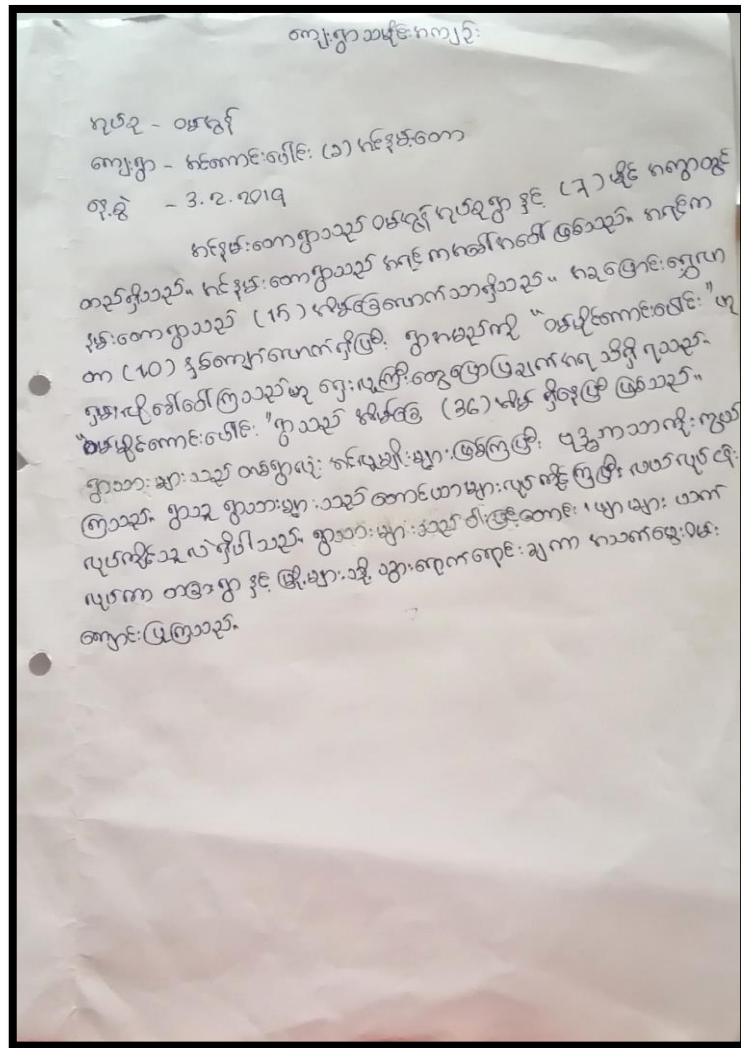 ကျေးရွာသမိုင်းအကျဉ်း
အုပ်စု - ဝမ်ဟွန်
ကျေးရွာ - အင်တောင်းပေါင်း (ခ) အင်နမ်းတော
နေ့စွဲ - 3.2.2019
အင်နမ်းတောရွာသည် ဝမ်ဟွန်အုပ်စုရွာ နှင့် (7) မိုင် အကွာတွင်
တည်ရှိသည်။ အင်နမ်းတောရွာသည် အရင်ကအခေါ်အဝေါ် ဖြစ်သည်။ အရင်က
နမ်းတောရွာသည် (15) အိမ်ခြေလောက်သာရှိသည်။ အခုပြောင်းရွှေ့လာ
တာ (20) နှစ်ကျော်လောက်ရှိပြီး ရွာအမည်ကို "ဝမ်မိုင်ကောင်းပေါင်း" ဟု
ရှမ်းလိုခေါ်ဝေါ်ကြသည်ဟု ရှေးလူကြီးတွေပြောပြချက်အရ သိရှိရသည်။
"ဝမ်မိုင်ကောင်းပေါင်း" ရွာသည် အိမ်ခြေ (36) အိမ် ရှိနေပြီ ဖြစ်သည်။
ရွာသားများသည် တစ်ရွာလုံး အင်လူမျိုးများဖြစ်ကြပြီး ဗုဒ္ဓဘာသာကိုးကွယ်
ကြသည်။ ရွာသူ ရွာသားများသည် တောင်ယာများလုပ်ကိုင်ကြပြီး လယ်လုပ်ငန်း
လုပ်ကိုင်သူလဲရှိပါသည်။ ရွာသားများသည် ဝါးဖြင့်တောင်း၊ ဖျာများ ယက်
လုပ်ကာ တခြားရွာ နှင့် မြို့များသို့ သွားရောက်ရောင်းချကာ အသက်မွေးဝမ်း
ကျောင်းပြုကြသည်။